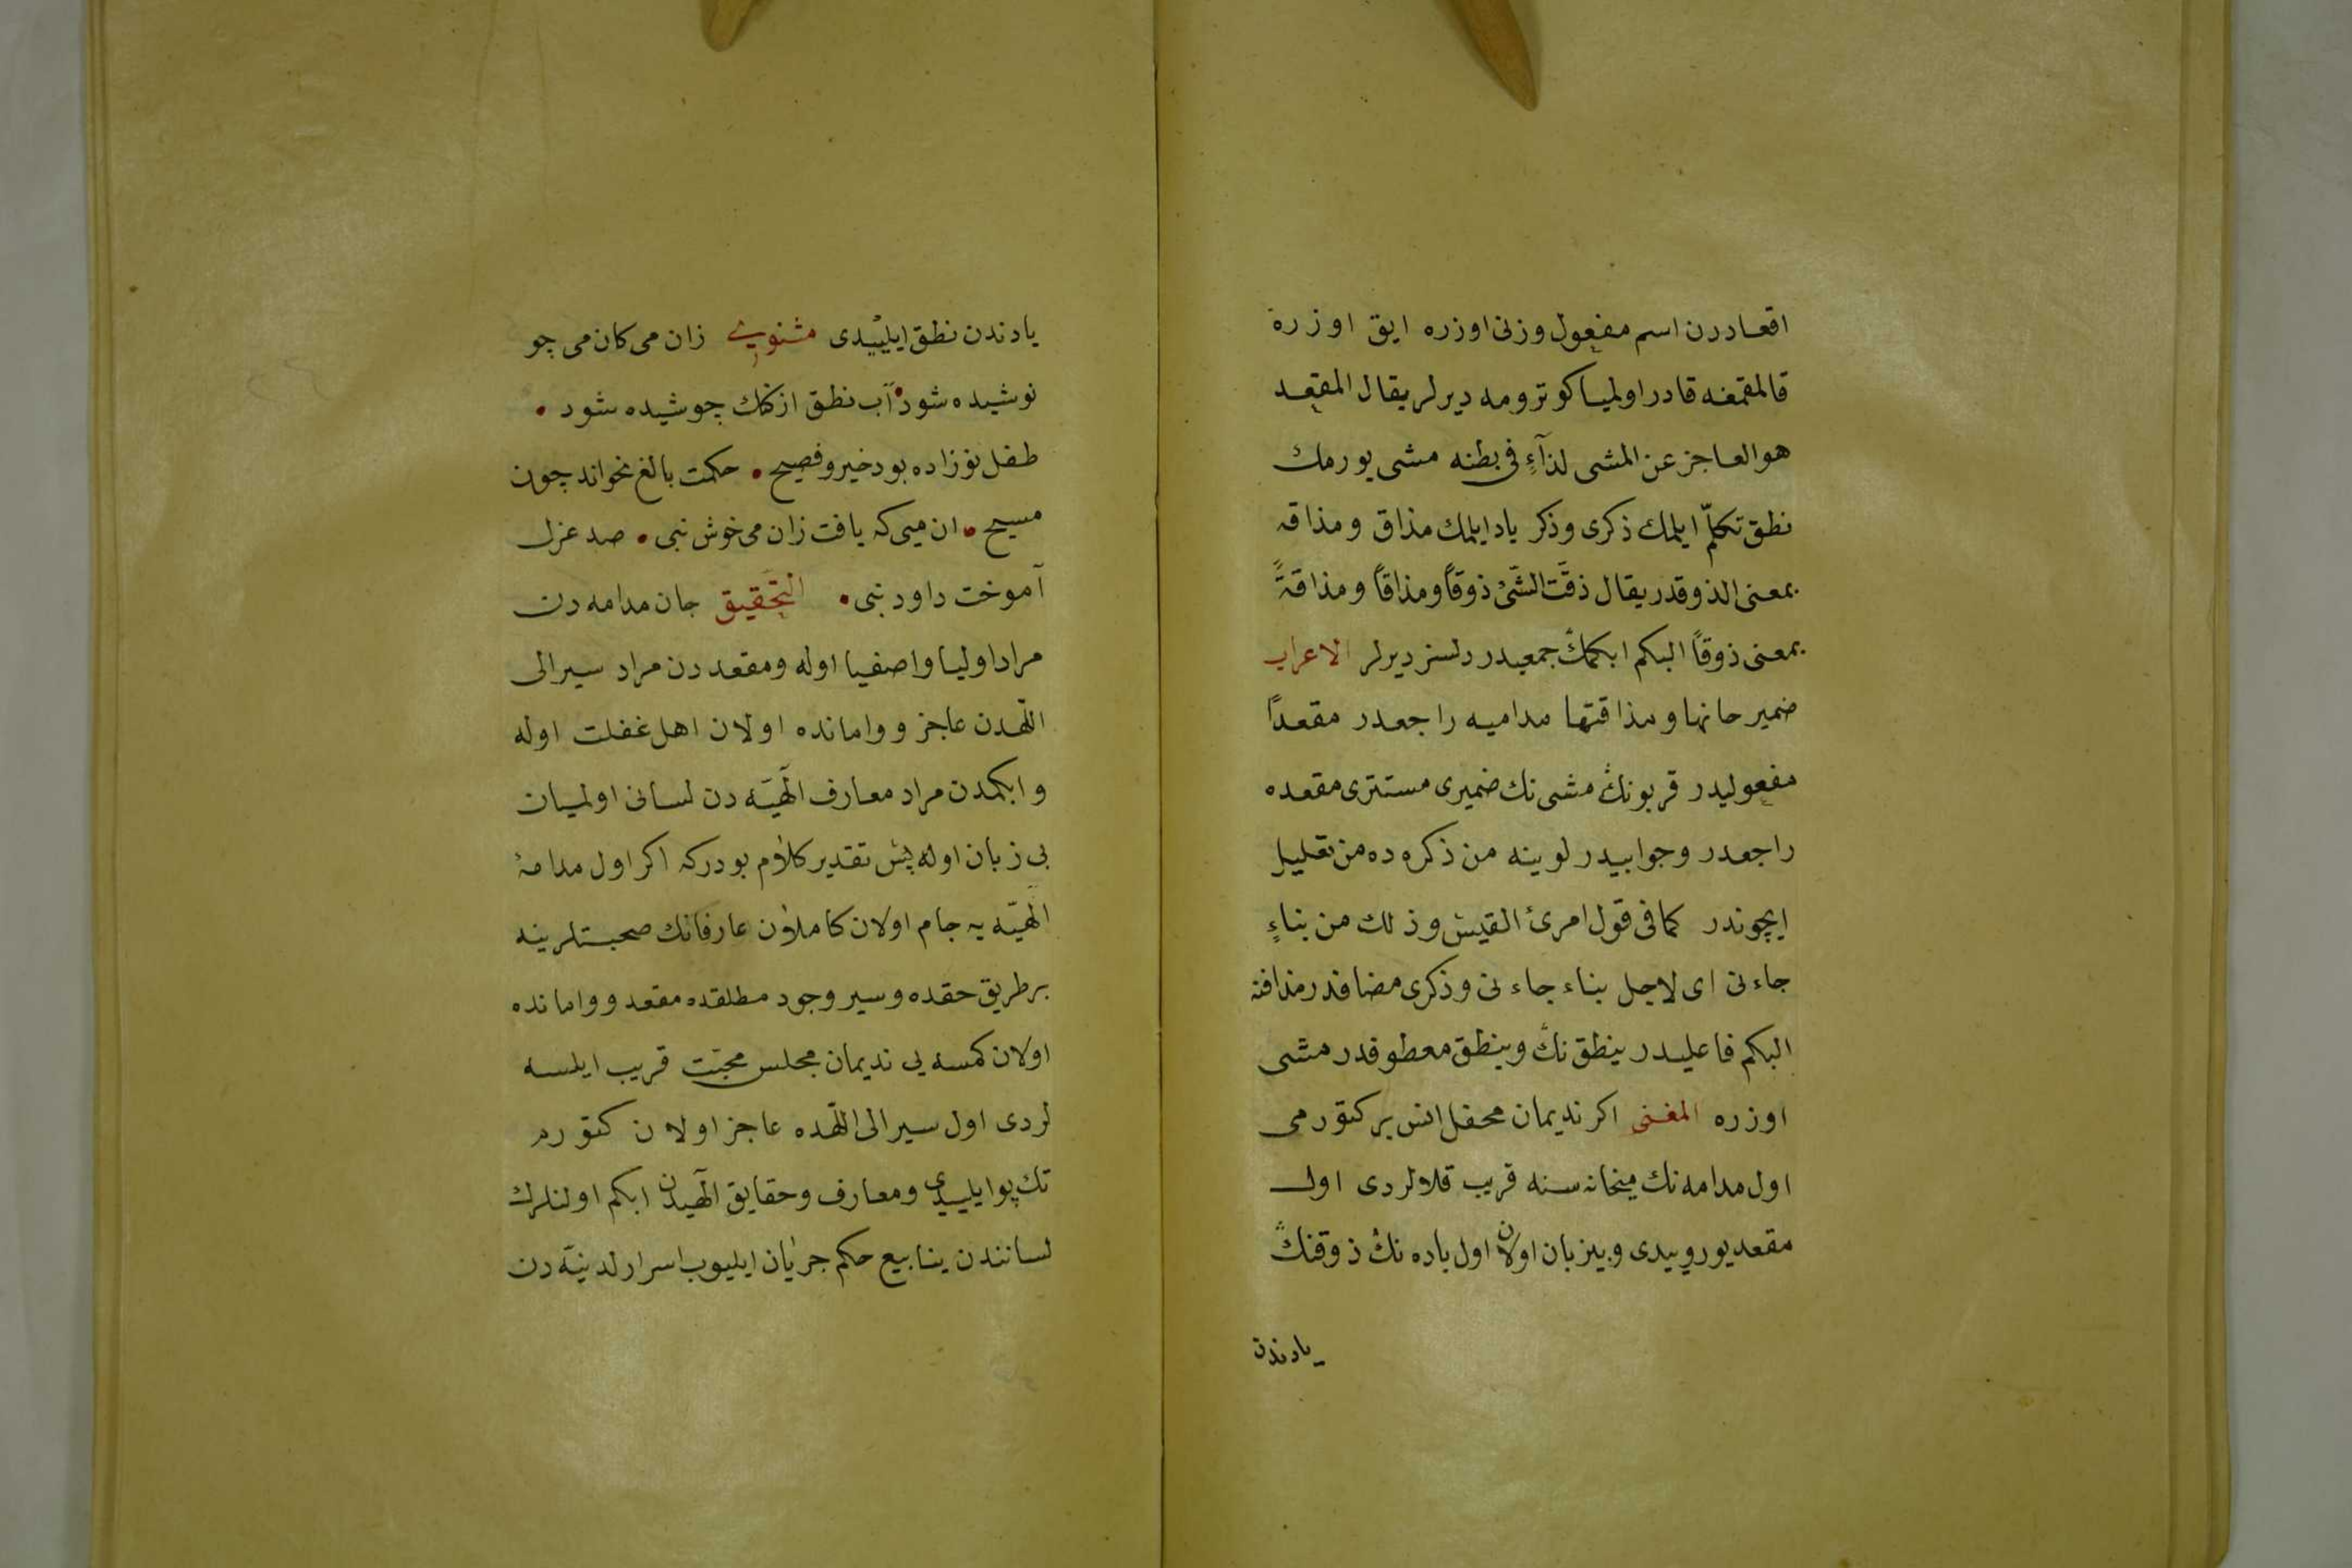 اقعاددرن اسم مفعول وزنی اوزره ایق اوزره
قالمقمغه قادر اولمیا کوترومه دیرلر یقال المقعد
هو العاجز عن المشی لدآءٍ فی بطنه مشی یورمك
نطق تکلّم ایلمك ذکری وذکر یاد ایلمك مذاق و مذاقه
بمعنی الذوقدر یقال ذقت الشئ ذوقاً ومذاقاً و مذاقةً
بمعنی ذوقاً البکم ابکمڭ جمعیدر دلسز دیرلر الاعراب
ضمیر حانها و مذاقتها مدامیه راجعدر مقعداً
مفعولیدر قربونڭ مشی نك ضمیری مستتری مقعده
راجعدر وجوابیدر لوینه من ذکره ده من تعلیل
ایچوندر کما فی قول امرئ القیس وذلك من بناءٍ
جاءنی ای لاجل بناء جاءنی وذکری مضافدر مذاقته
البکم فاعلیدر ینطق نڭ وینطق معطوفدر مشی
اوزره المغنی اکر ندیمان محفل انس بر کتورمی
اول مدامه نك میخانه سنه قریب قلالردی اول
مقعد یورویدی وبیزبان اولان اول باده نڭ ذوقنڭ
یادندن
یادندن نطق ایلییدی مثنوی زان می کان می چو
نوشیده شود • آب نطق از کنك جوشیده شود •
طفل نوزاده بود خیر وفصیح • حکمت بالغ نخواند چون
مسیح • ان میی که یافت زان می خوش نبی • صد غزل
آموخت داود نبی • التحقیق جان مدامه دن
مراد اولیا واصفیا اوله ومقعددن مراد سیر الی
اللّهدن عاجز و وامانده اولان اهل غفلت اوله
وابکمدن مراد معارف الٓهیّه دن لسانی اولمیان
بی زبان اوله پس تقدیر کلام بودرکه اکر اول مدامۀ
الٓهیّه یه جام اولان کاملان عارفانك صحبتلرینه
بر طریق حقده وسیر وجود مطلقده مقعد و وامانده
اولان کمسه یی ندیمان مجلس محبّت قریب ایلسه
لردی اول سیر الی اللّهده عاجز اولان کتورم
تك پوا یلییدی ومعارف وحقایق الٓهیدن ابکم اولنلرك
لسانندن ینابیع حکم جریان ایلیوب اسرار لدنیّه دن